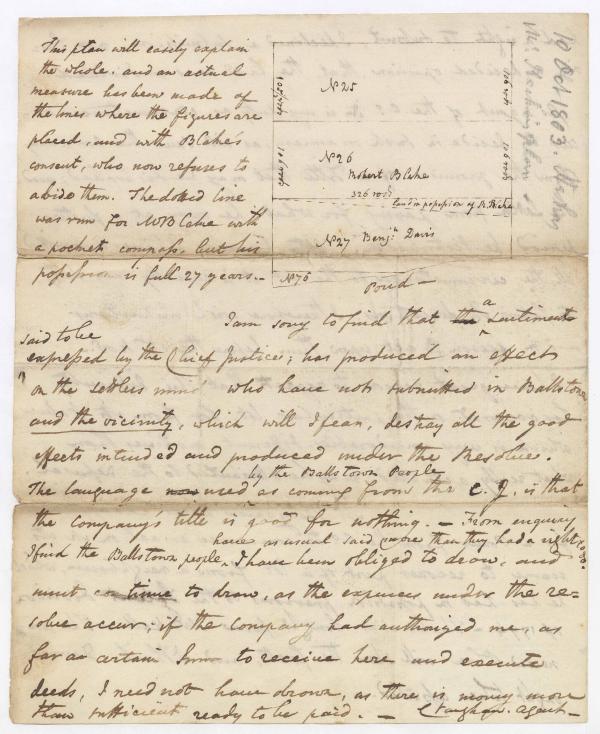 This plan will easily explain
the whole. and an actual
measure has been made of
the lines where the figures are
placed, and with Blake's
consent, who now refuses to
abide them. The dotted line
was run for Mr Blake with
a pocket compass, but his
possession is full 27 years.-
No 25
No 26
Robert Blake
326 rods
Land in possession of R. Blake
No 27 Benjn Davis
No 76
Pond-
10 Oct 1803.
I am sorry to find that the a sentiment
said to be
expressed by the Chief Justice; has produced an effect
on the settlers mind who have not submitted in Ballstown
and the vicinity, which will I fear, destroy all the good
effects intended and produced under the Resolve.
by the Ballstown People
The language used as coming from the C. J. is that
the Company's title is good for nothing. - From enquiry
have as usual said more than they had a right to do.
I find the Ballstown people, I have been obliged to draw, and
must continue to draw, as the expences under the re-
solve accur; if the Company had authorized me, as
far as certain Sums to receive here and execute
deeds, I need not have drawn, as there is money more
than sufficient ready to be paid. - C Vaughan. Agent-